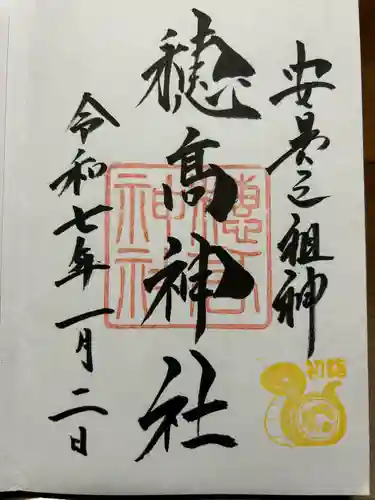 安曇之祖神
穂高神社
穂高神社
令和七年一月二日
初詣